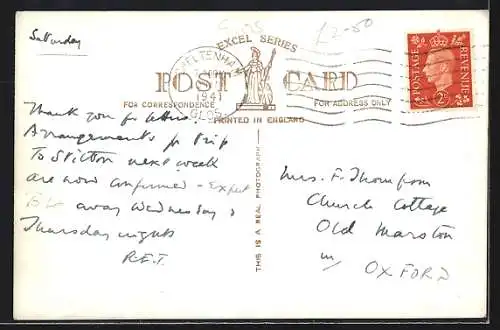 Saturday
£2-50
EXCEL SERIES
CHELTENHAM
1941
GLOS.
POST CARD
FOR CORRESPONDENCE
FOR ADDRESS ONLY
PRINTED IN ENGLAND
POSTAGE
REVENUE
2D
THIS IS A REAL PHOTOGRAPH
Thank you for letters.
Arrangements for trip
To Stilton next week
are now confirmed - Expect
away Wednesday &
Thursday nights
R.E.T.
Mrs. F. Thompson
Church Cottage
Old Marston
OXFORD